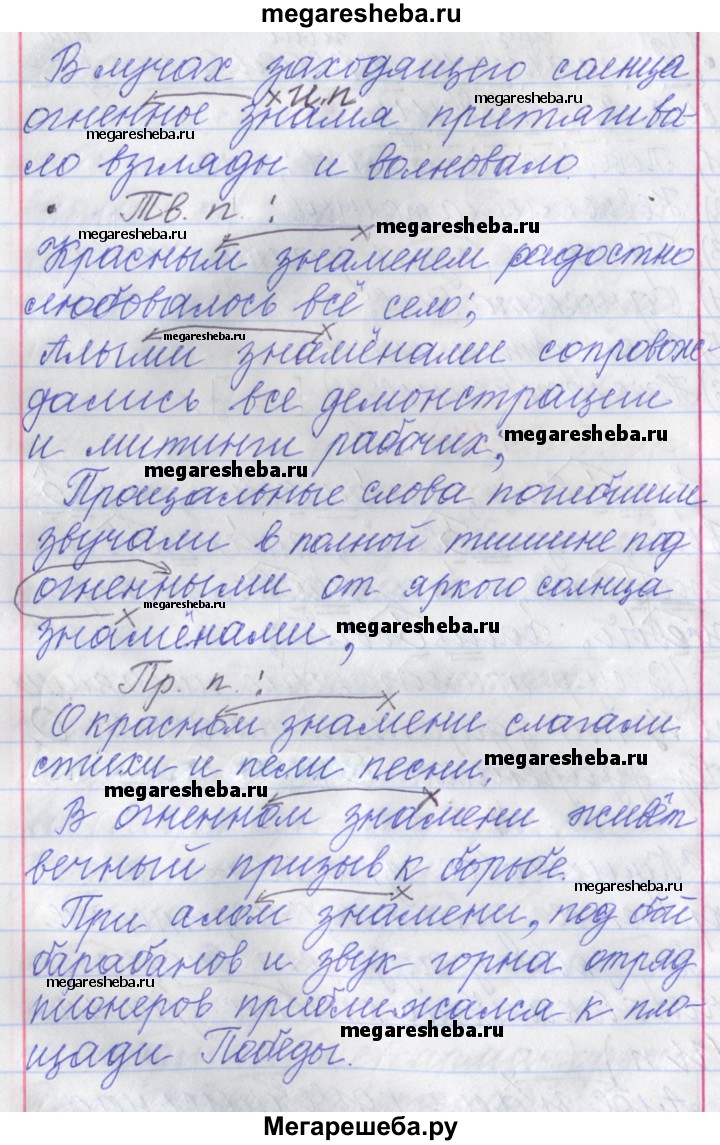 megaresheba.ru
В лучах заходящего солнца
megaresheba.ru
х И.п
огненное знамя притягива-
megaresheba.ru
megaresheba.ru
ло взгляды и волновало.
Тв. п. :
х megaresheba.ru
Красным знаменем радостно
любовалось всё село;
х
megaresheba.ru
Алыми знамёнами сопровож-
megaresheba.ru
дались все демонстрации
и митинги рабочих; megaresheba.ru
megaresheba.ru
Прощальные слова погибшим
звучали в полной тишине под
огненными от яркого солнца
х megaresheba.ru
знамёнами, megaresheba.ru
Пр. п. :
х
О красном знамени слагали
стихи и пели песни. megaresheba.ru
megaresheba.ru х
В огненном знамени живёт
вечный призыв к борьбе.
х megaresheba.ru
При алом знамени, под бой
барабанов и звук горна отряд
megaresheba.ru
пионеров приближался к пло-
megaresheba.ru
щади Победы.
Мегарешеба.ру